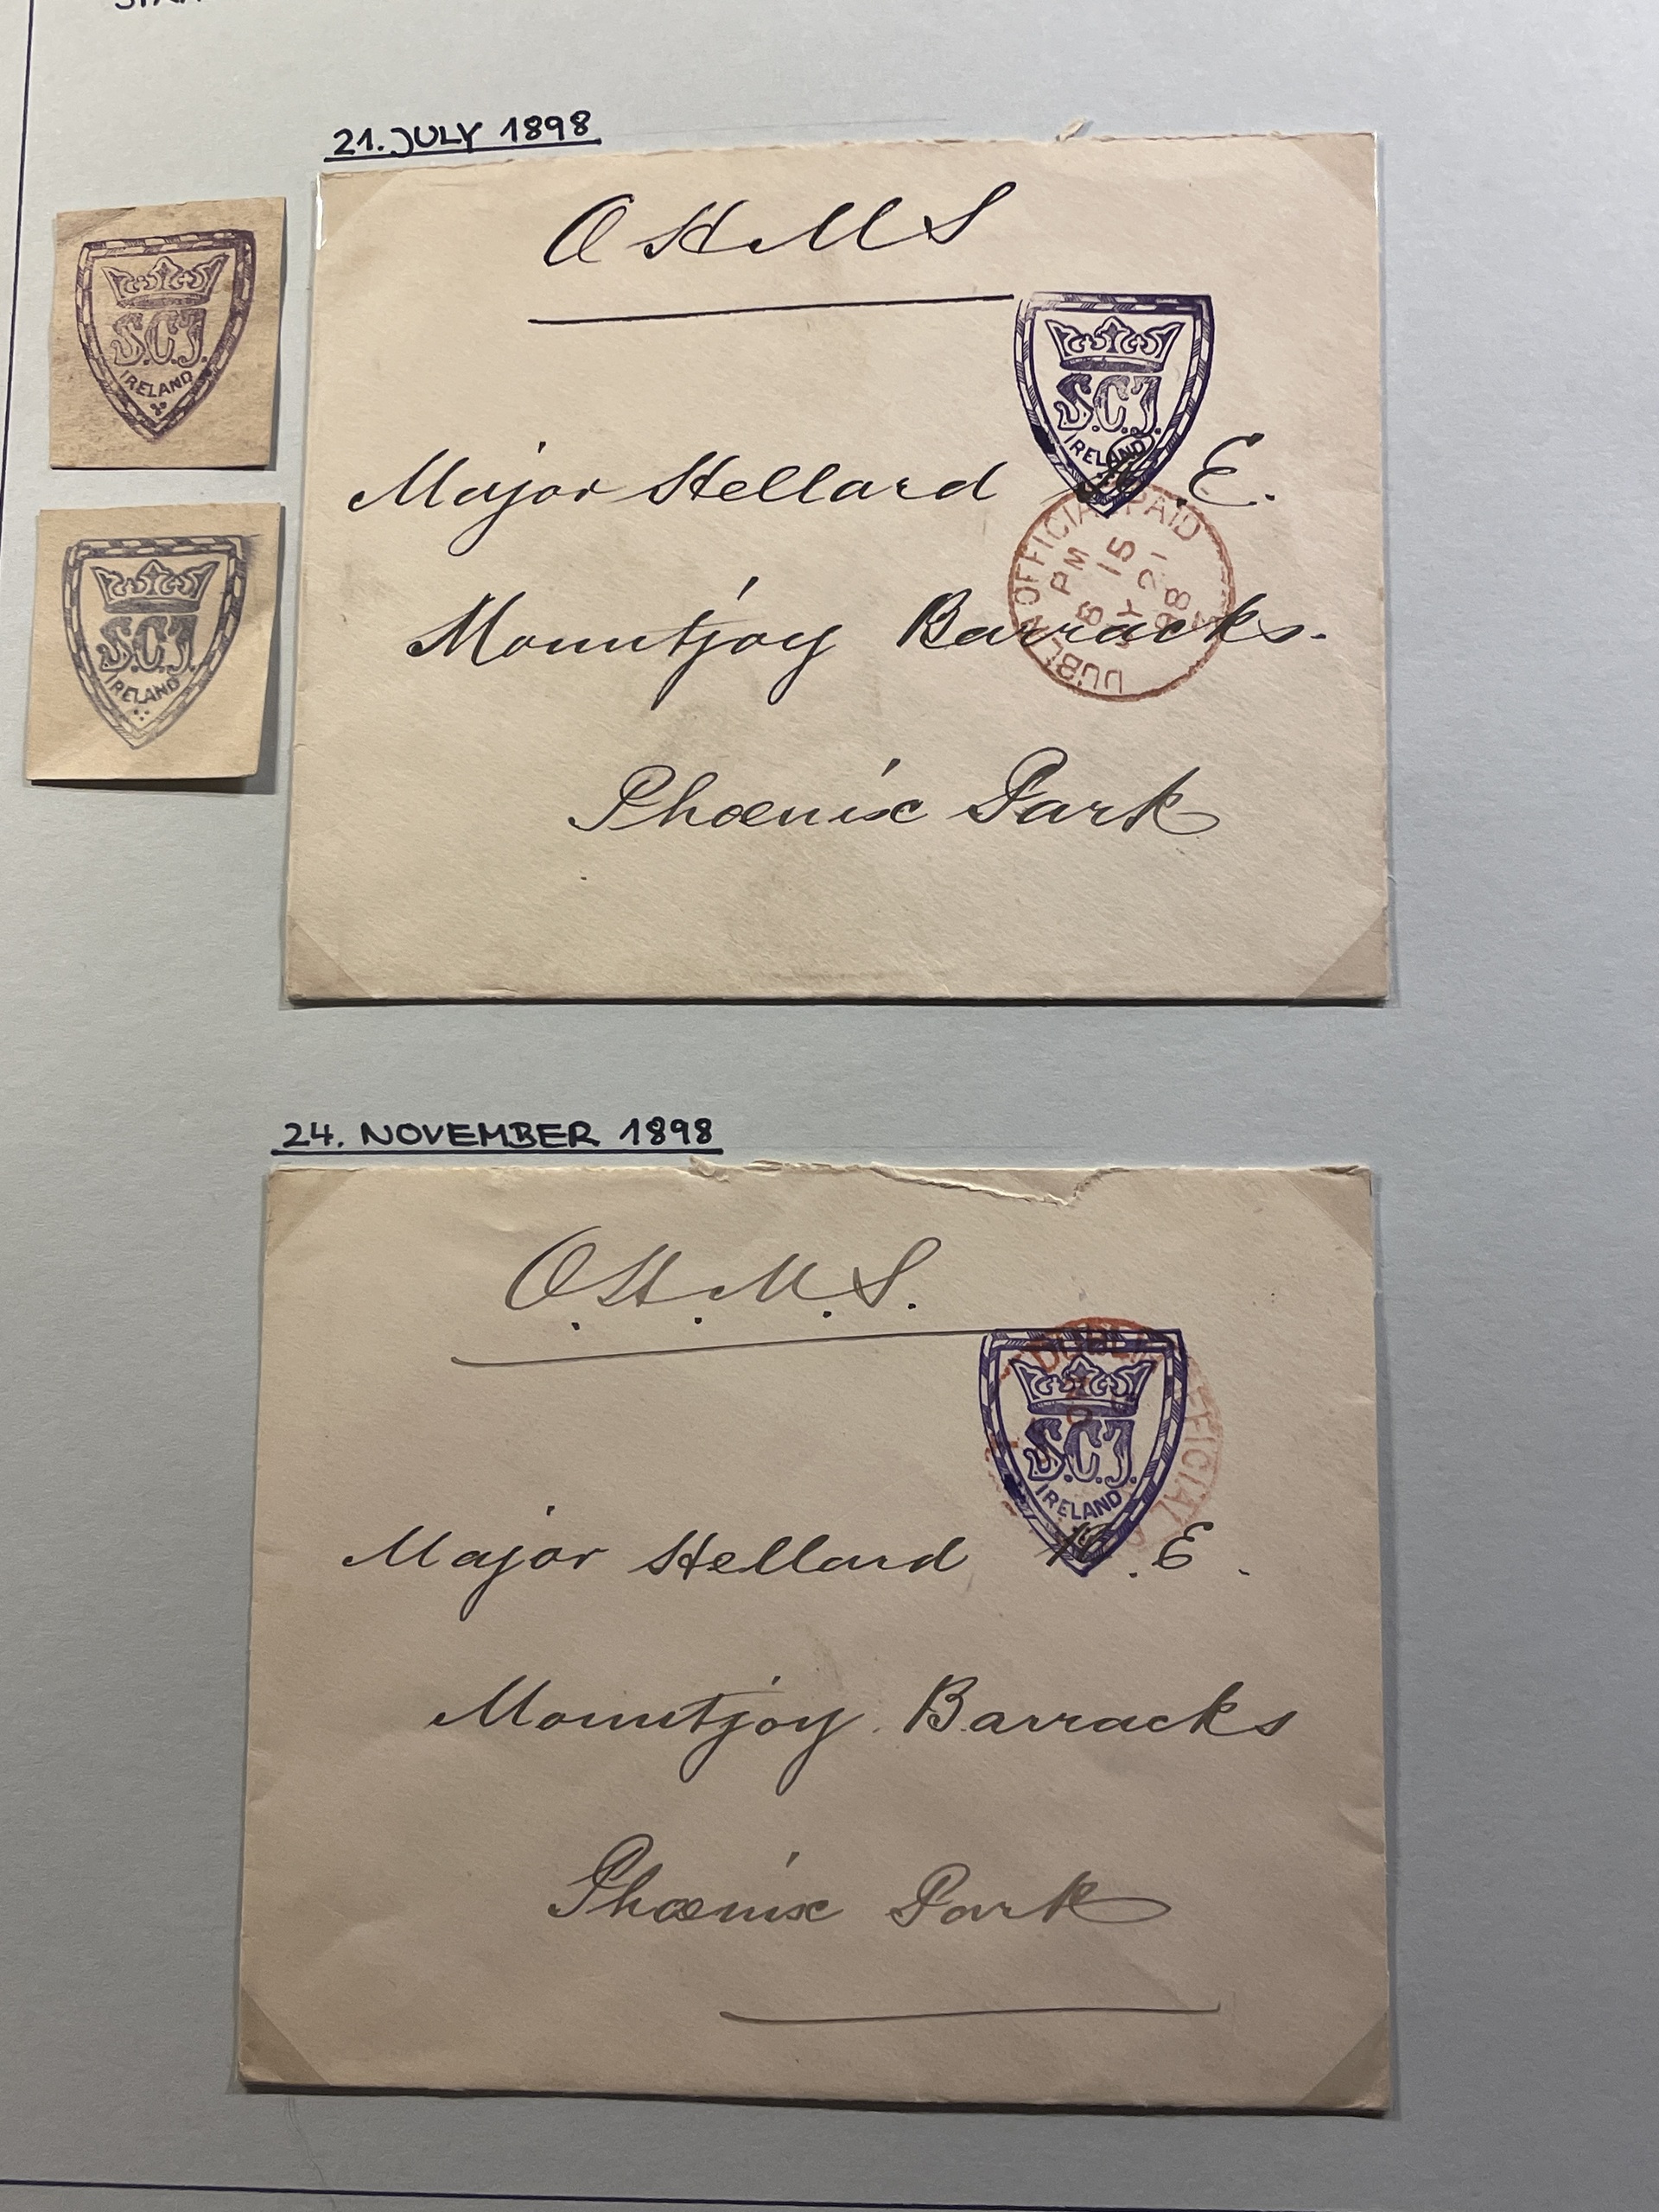 21. JULY 1898
S.C.J.
IRELAND
S.C.J.
IRELAND
O H M S
S.C.J.
IRELAND
Major Hellard R.E.
DUBLIN OFFICIAL PAID
6 15
PM
JY 21
98
Mountjoy Barracks.
Phoenix Park
24. NOVEMBER 1898
O.H.M.S.
DUBLIN OFFICIAL
S.C.J.
IRELAND
Major Hellard R.E.
Mountjoy Barracks
Phoenix Park